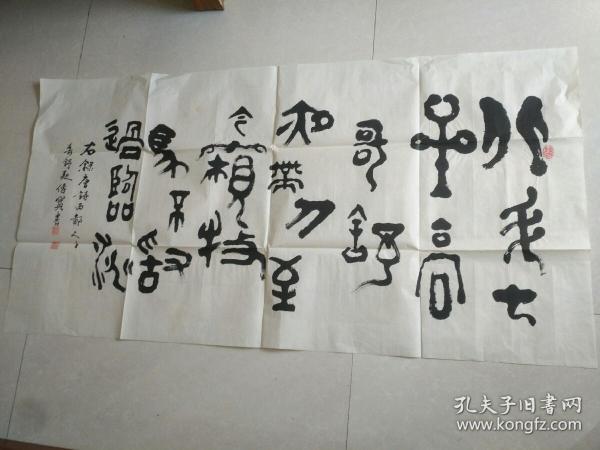 北斗七
星高
哥舒
夜帶刀至
今窺牧
馬不敢
過臨洮
右錄唐詩西鄙人之
哥舒歌 書
孔夫子旧书网
www.kongfz.com